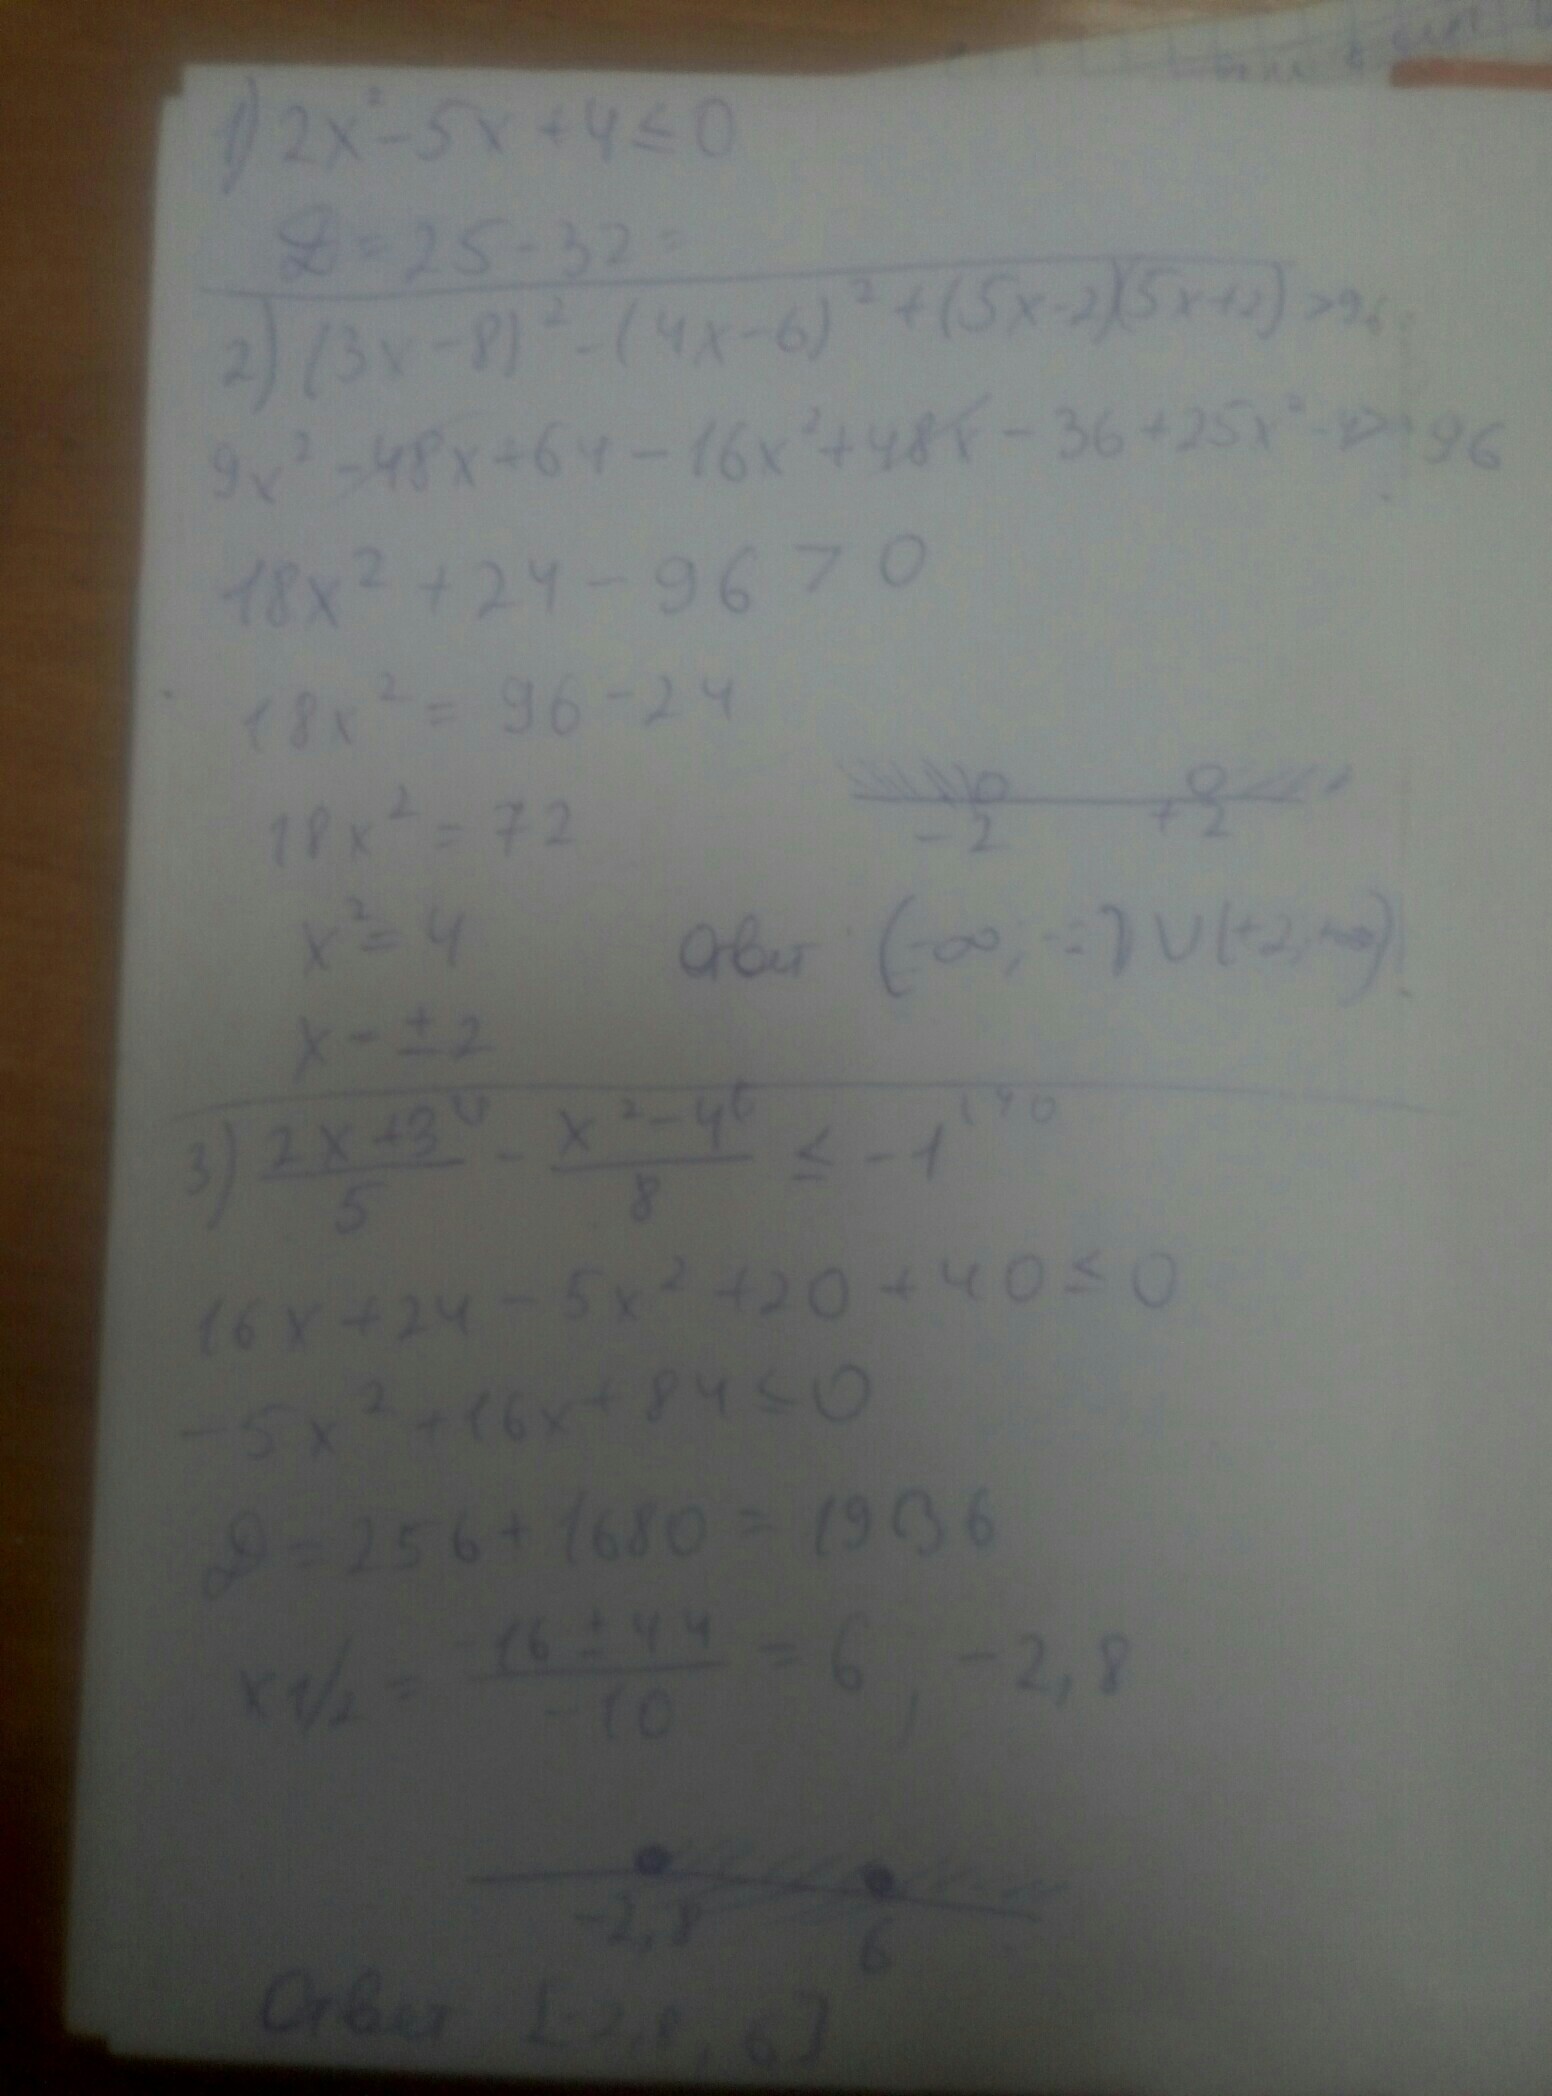 1) 2x² - 5x + 4 ≤ 0
D = 25 - 32 =
2) (3x - 8)² - (4x - 6)² + (5x - 2)(5x + 2) > 96
9x² - 48x + 64 - 16x² + 48x - 36 + 25x² - 4 > 96
18x² + 24 - 96 > 0
18x² = 96 - 24
18x² = 72
-2 +2
x² = 4
Ответ (-∞, -2) ∪ (+2, +∞)
x = ±2
3) (2x + 3)/5 - (x² - 4)/8 ≤ -1
16x + 24 - 5x² + 20 + 40 ≤ 0
-5x² + 16x + 84 ≤ 0
D = 256 + 1680 = 1936
x1/2 = (-16 ± 44)/(-10) = 6, -2,8
-2,8 6
Ответ [-2,8, 6]